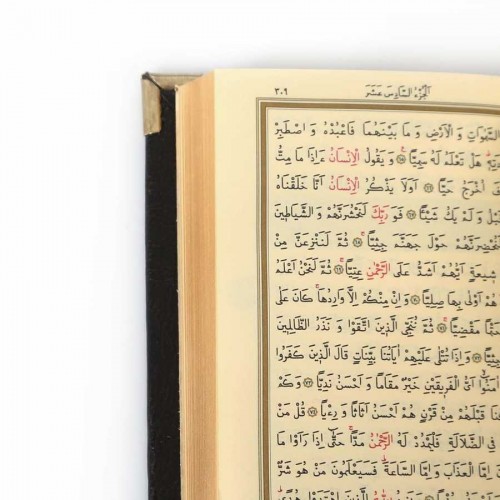 ٣٠٩ اَلْجُزْءُ السَّادِسَ عَشَرَ
السَّمٰوَاتِ وَالْاَرْضِ وَمَا بَيْنَهُمَا فَاعْبُدْهُ وَاصْطَبِرْ
هَلْ تَعْلَمُ لَهُ سَمِيًّا ﴿٦٥﴾ وَيَقُولُ الْاِنْسَانُ ءَاِذَا مَا مِتُّ
اُخْرَجُ حَيًّا ﴿٦٦﴾ اَوَلَا يَذْكُرُ الْاِنْسَانُ اَنَّا خَلَقْنَاهُ
وَلَمْ يَكُ شَيْـًٔا ﴿٦٧﴾ فَوَرَبِّكَ لَنَحْشُرَنَّهُمْ وَالشَّيَاطِينَ
لَنُحْضِرَنَّهُمْ حَوْلَ جَهَنَّمَ جِثِيًّا ﴿٦٨﴾ ثُمَّ لَنَنْزِعَنَّ مِنْ
شِيعَةٍ اَيُّهُمْ اَشَدُّ عَلَى الرَّحْمٰنِ عِتِيًّا ﴿٦٩﴾ ثُمَّ لَنَحْنُ اَعْلَمُ
هُمْ اَوْلٰى بِهَا صِلِيًّا ﴿٧٠﴾ وَاِنْ مِنْكُمْ اِلَّا وَارِدُهَا كَانَ عَلٰى
حَتْمًا مَقْضِيًّا ﴿٧١﴾ ثُمَّ نُنَجِّي الَّذِينَ اتَّقَوْا وَنَذَرُ الظَّالِمِينَ
جِثِيًّا ﴿٧٢﴾ وَاِذَا تُتْلٰى عَلَيْهِمْ اٰيَاتُنَا بَيِّنَاتٍ قَالَ الَّذِينَ كَفَرُوا
اٰمَنُوا اَيُّ الْفَرِيقَيْنِ خَيْرٌ مَقَامًا وَاَحْسَنُ نَدِيًّا ﴿٧٣﴾ وَكَمْ
قَبْلَهُمْ مِنْ قَرْنٍ هُمْ اَحْسَنُ اَثَاثًا وَرِءْيًا ﴿٧٤﴾ قُلْ مَنْ
فِي الضَّلَالَةِ فَلْيَمْدُدْ لَهُ الرَّحْمٰنُ مَدًّا حَتّٰى اِذَا رَاَوْا مَا
اِمَّا الْعَذَابَ وَاِمَّا السَّاعَةَ فَسَيَعْلَمُونَ مَنْ هُوَ شَرٌّ